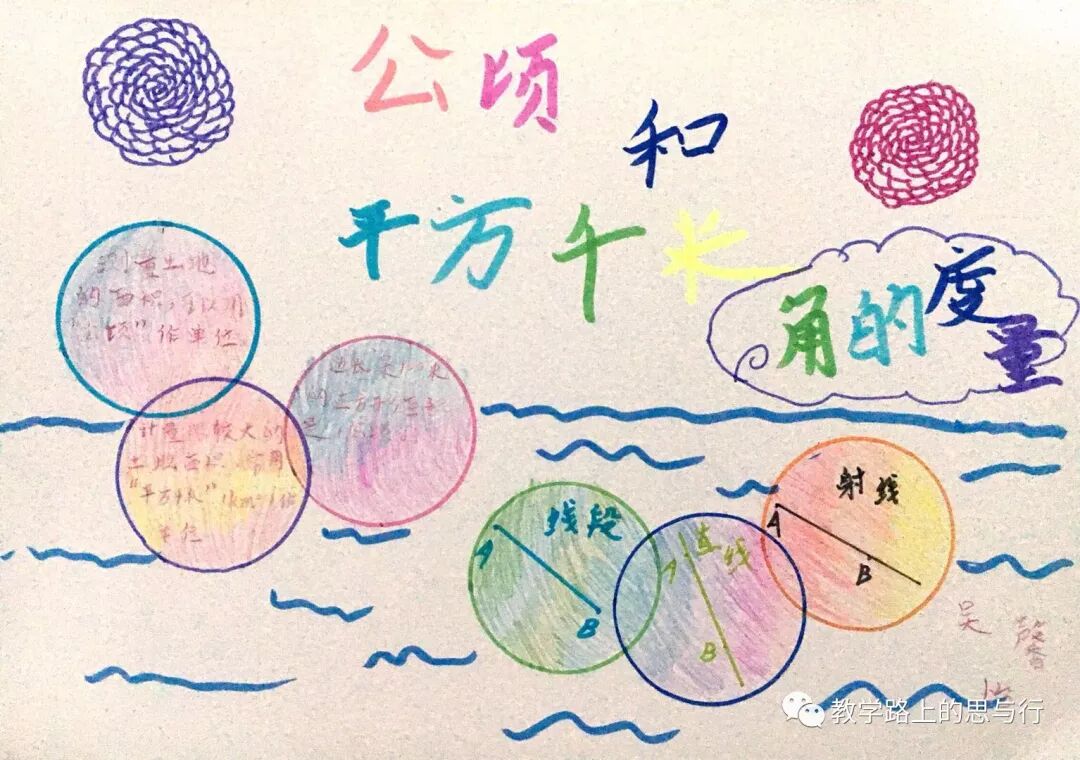 公顷
和
平方千米
角的度量
测量土地
的面积，可以用
“公顷”作单位
计量比较大的
土地面积 常用
“平方千米” 1km² 作
单位
边长是100米
的正方形面积
是
线段
A
B
直线
A
B
射线
A
B
吴馨怡
教学路上的思与行